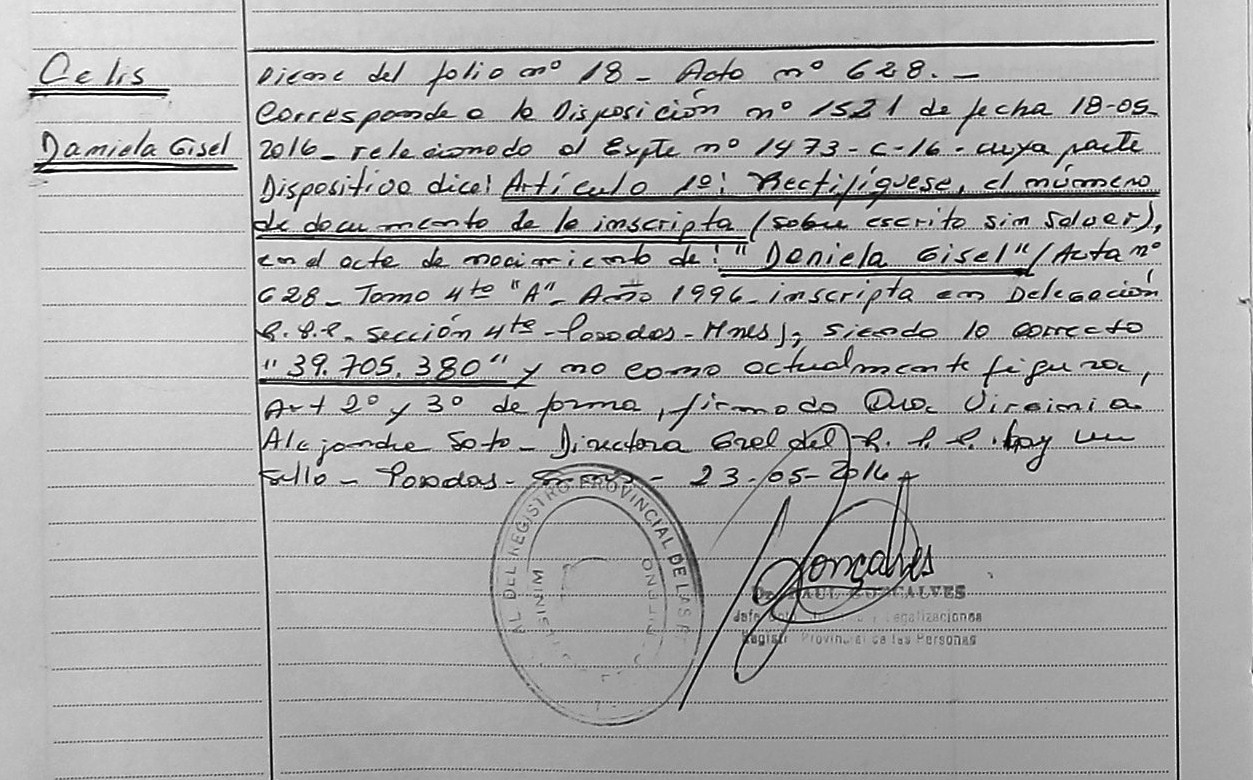 Celis
Daniela Gisel
Viene del folio nº 18 - Acta nº 628. -
Corresponde a la Disposición nº 1521 de fecha 18-05-
2016 - relacionado al Expte nº 1473-C-16 - cuya parte
Dispositiva dice: Artículo 1º: Rectifíquese, el número
de documento de la inscripta (sobre escrito sin salvar),
en el acta de nacimiento de: "Daniela Gisel" (Acta nº
628 - Tomo 4to "A" - Año 1996 - inscripta en Delegación
R.P.P. Sección 4ta - Posadas - Mnes), siendo lo correcto
"39.705.380" y no como actualmente figura,
Art 2º y 3º de forma, firmado Dra. Virginia
Alejandra Soto - Directora Gral del R. P. P. hay un
sello - Posadas - - 23-05-2016
AL DEL REGISTRO PROVINCIAL DE LAS P
MINIS
Gonçalves
RAUL GONCALVES
Jefe Legalizaciones
Registr Provincial de las Personas